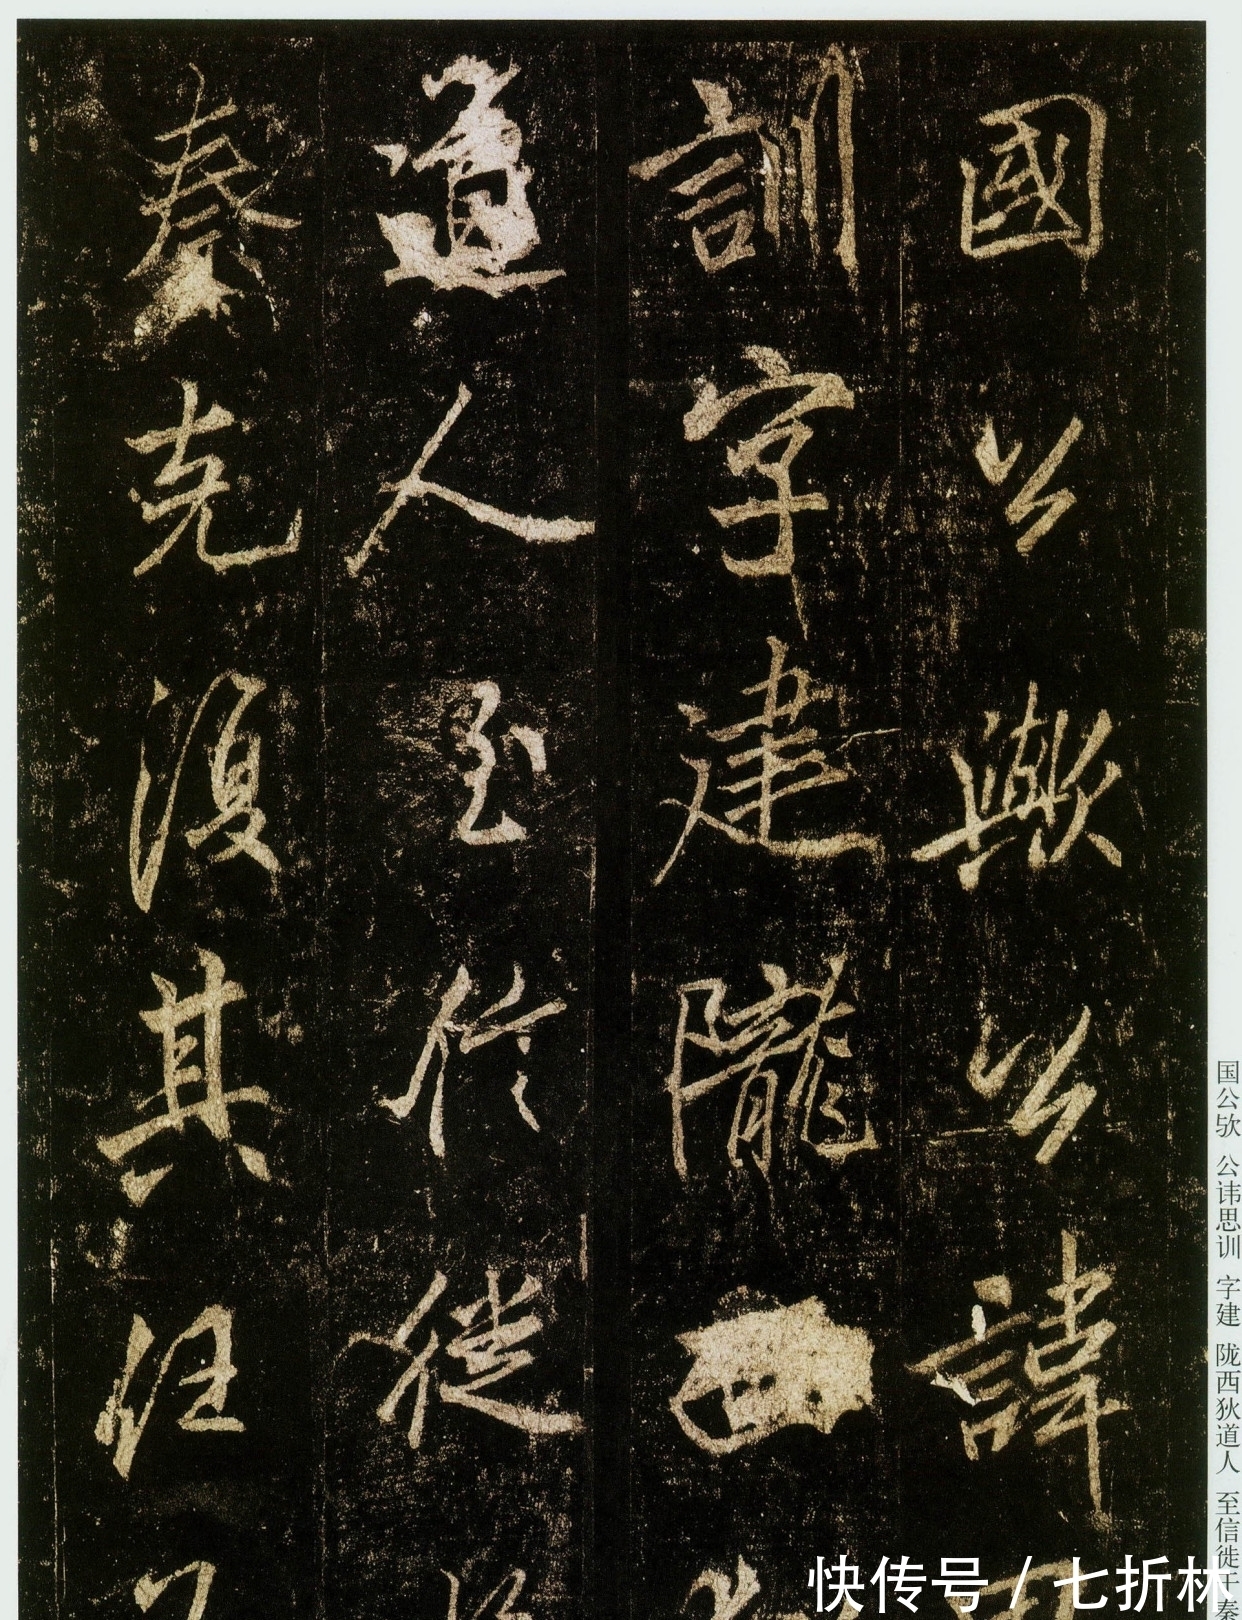 國公歟公諱
訓字建隴西
道人至信徙
秦克復其任
国公欤 公讳思训 字建 陇西狄道人 至信徙于秦
快传号 / 七折林